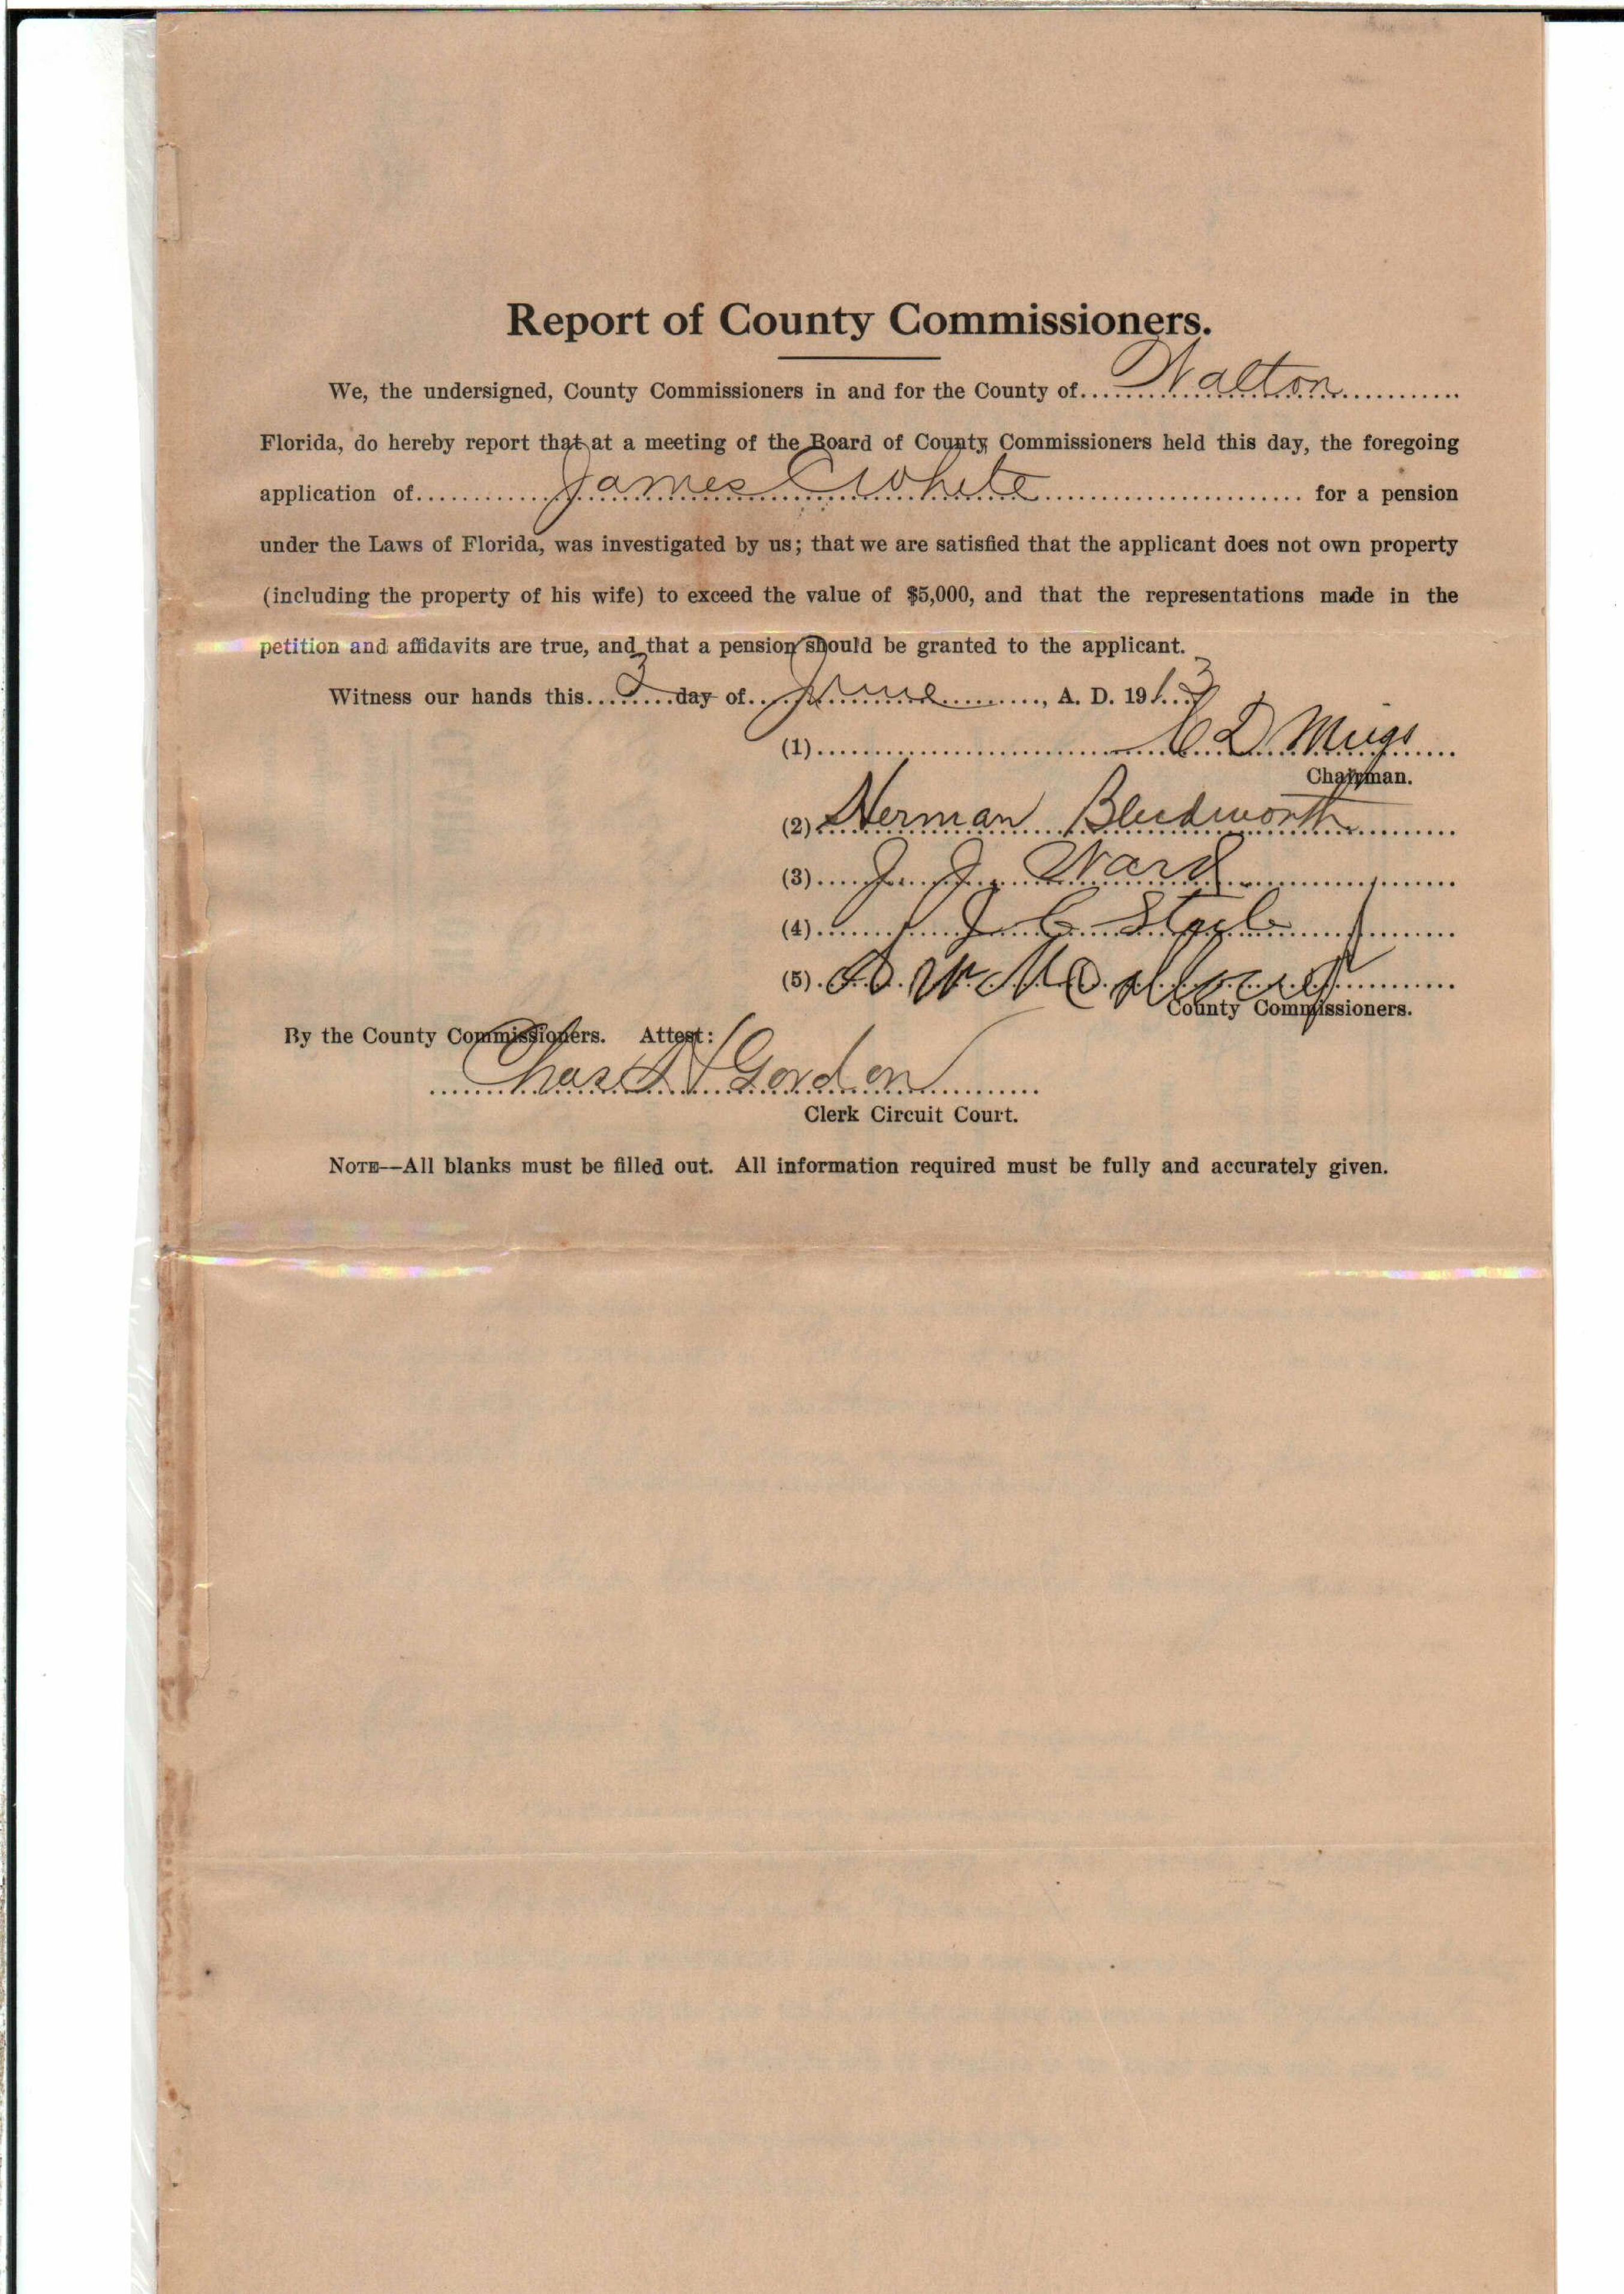 Report of County Commissioners.
We, the undersigned, County Commissioners in and for the County of Walton
Florida, do hereby report that at a meeting of the Board of County Commissioners held this day, the foregoing
application of James C White for a pension
under the Laws of Florida, was investigated by us; that we are satisfied that the applicant does not own property
(including the property of his wife) to exceed the value of $5,000, and that the representations made in the
petition and affidavits are true, and that a pension should be granted to the applicant.
Witness our hands this 3 day of June, A. D. 1913
(1) C D Meigs
Chairman.
(2) Herman Bludworth
(3) J. J. Ward
(4) J C Steele
(5) D. W.
County Commissioners.
By the County Commissioners. Attest:
Chas Gordon
Clerk Circuit Court.
NOTE--All blanks must be filled out. All information required must be fully and accurately given.